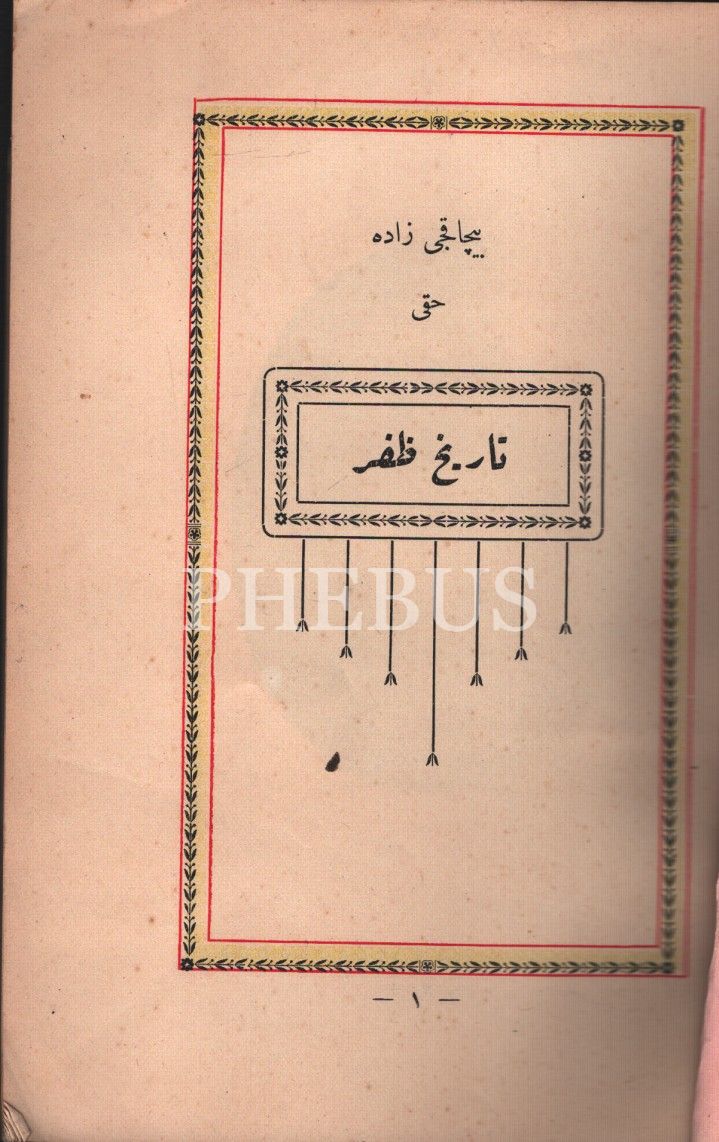 بيچاقجی زاده
حقی
تاريخ ظفر
PHEBUS
— ١ —